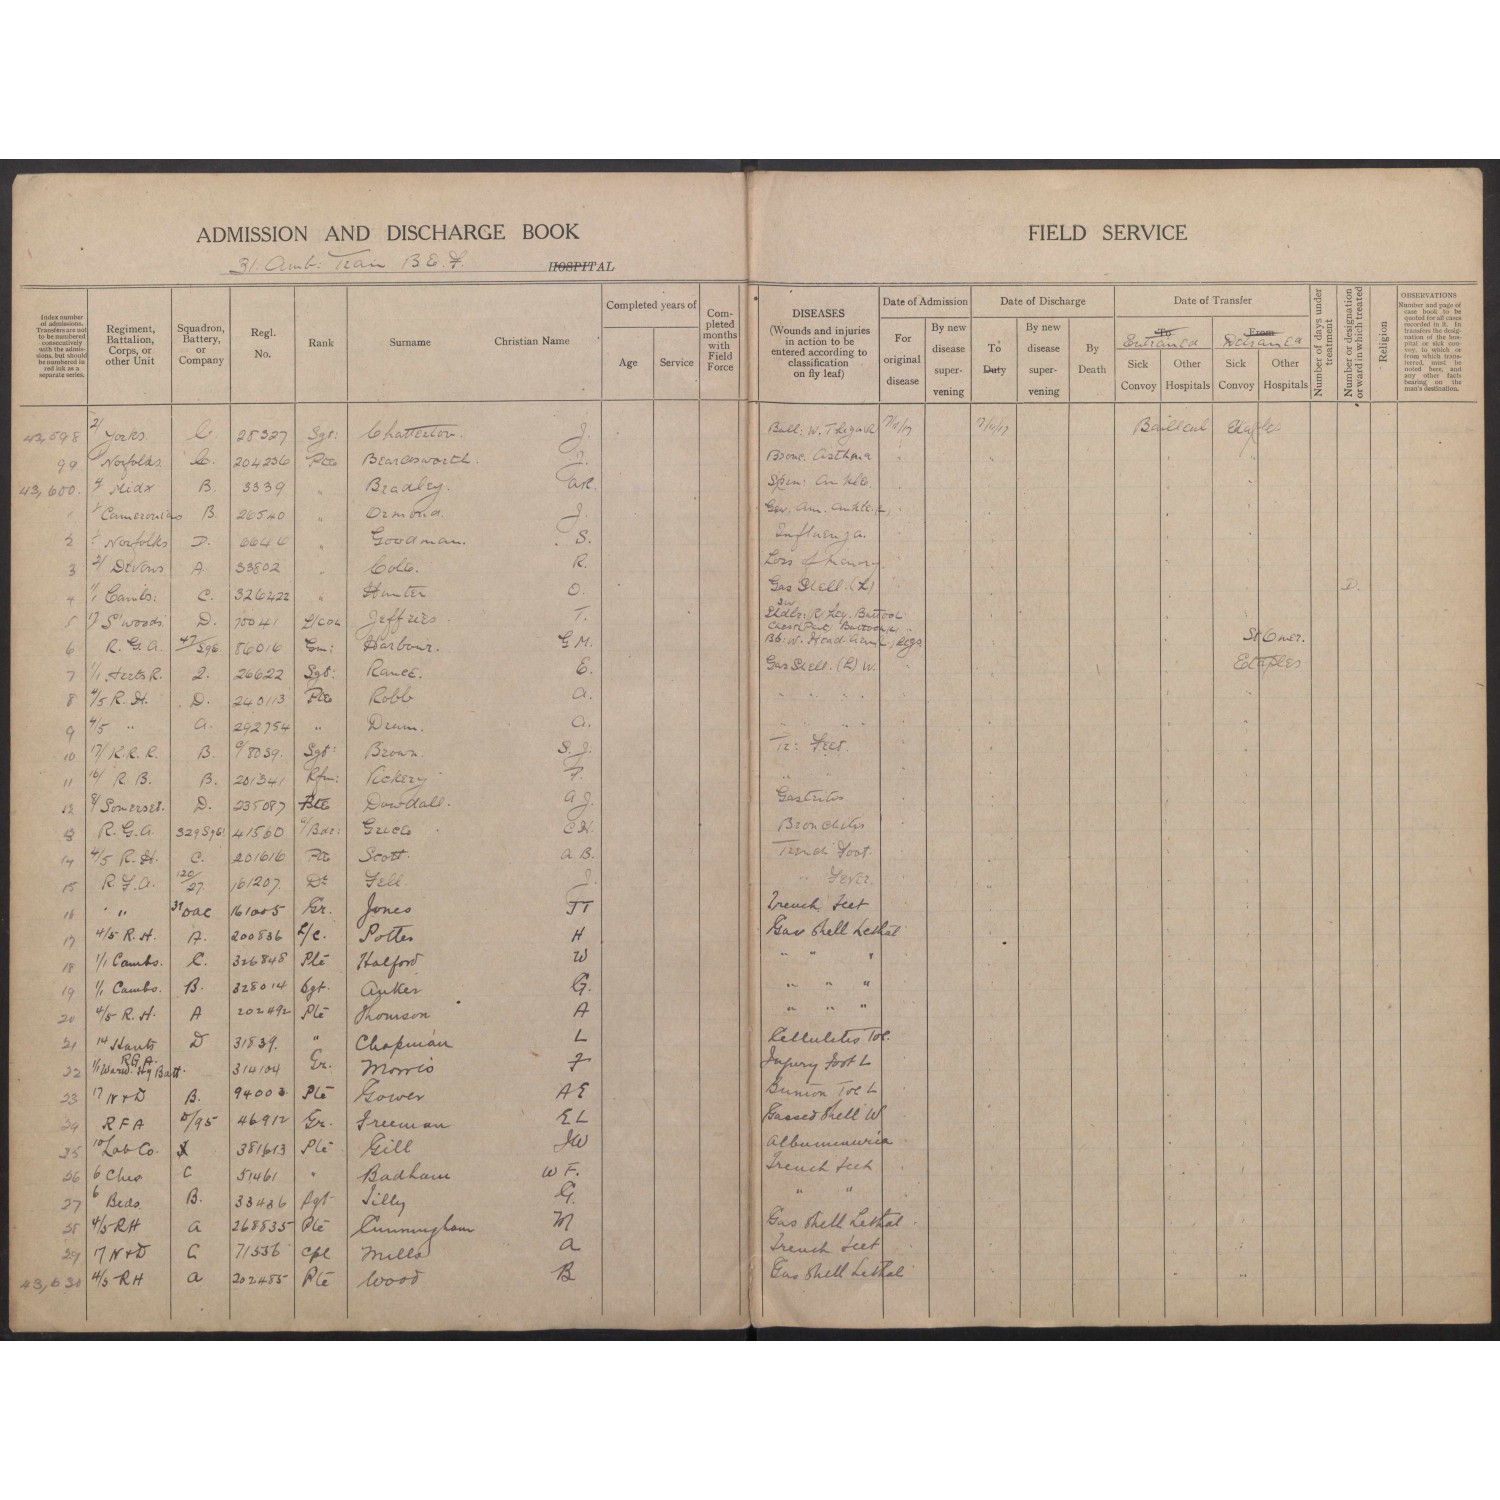 ADMISSION AND DISCHARGE BOOK
FIELD SERVICE
31. Amb: Train B.E.F. HOSPITAL
Index number of admissions. Transfers are not to be numbered consecutively with the admissions, but should be numbered in red ink as a separate series.
Regiment, Battalion, Corps, or other Unit
Squadron, Battery, or Company
Regl. No.
Rank
Surname
Christian Name
Completed years of
Age
Service
Completed months with Field Force
DISEASES
(Wounds and injuries in action to be entered according to classification on fly leaf)
Date of Admission
For original disease
By new disease supervening
Date of Discharge
To Duty
By new disease supervening
By Death
Date of Transfer
To
Entrained
Sick Convoy
Other Hospitals
From
Detrained
Sick Convoy
Other Hospitals
Number of days under treatment
Number or designation or ward in which treated
Religion
OBSERVATIONS
Number and page of case book to be quoted for all cases recorded in it. In transfers the designation of the hospital or sick convoy, to which or from which transferred, must be noted here, and any other facts bearing on the man's destination.
43,598 2/ Yorks. C. 28327 Sgt: Chatterton. J. Bull: W. Bailleul Etaples
99 Norfolks. C. 204236 Pte Beardsworth. J. Bronc. Asthma
43,600. 4/ Midx B. 3339 " Bradley. Spr: Ankle.
Cameronians B. 26540 " Ormond. J.
2 Norfolks D. 6646 " Goodman. S. Influenza.
3 2/ Devons A 33802 " Cole. R. Loss of Memory
4 1/1 Cambs: C. 326422 " Hunter O. Gas Shell. (L) D.
5 17 S'woods D. 70041 L/Cpl Jeffries. T.
6 R.G.A. 86016 Gnr: Harbour. G.M. St Omer.
7 1/1 Herts R. 2. 26622 Sgt: Rance. E. Gas Shell. (L) W. Etaples
8 4/5 R.H. D. 240113 Pte Robb A. " " " "
9 4/5 " A. 292754 " Drum. A. " " " "
10 17/ K.R.R. B. C/8039. Sgt: Brown. S.J. Tr: Feet.
11 16/ R B. B. 201341 Rfm: Vickery F. " "
12 8/ Somerset. D. 235087 Pte Dowdall. A J. Gastritis
13 R.G.A. 329 Sge: 41560 Grice C H. Bronchitis
14 4/5 R.H. C. 201616 Pte Scott. A.B. Trench Foot
15 R.F.A. 120/27. 161207. Dr Fell J. " Fever.
16 " " 31 DAC 161005 Gr. Jones JT Trench Feet
17 4/5 R.H. A. 200836 L/c. Potter H Gas Shell Lethal
18 1/1 Cambs. C. 326848 Pte Halford W " " "
19 1/1 Cambs. B. 328014 Sgt. Anker G. " " "
20 4/5 R.H. A 202492 Pte Thomson A " " "
21 14 Hants D 31839. " Chapman L Cellulitis Toe.
22 1/1 Warw. R.G.A. Hy Batt. 314104 Gr. Morris F Injury Foot L
23 17 N + D B. 94003 Pte Gower A E Bunion Toe L
24 R F A D/95 46912 Gr. Freeman E L Gassed Shell W
25 Lab Co. 381613 Pte Gill JW Albuminuria
26 6 Ches C 51461 " Badham W F. Trench Feet
27 6 Beds. B. 33436 Sgt Tilly G. " "
28 4/5 RH A 268535 Pte Cunningham M Gas Shell Lethal
29 17 N + D C 71536 Cpl Mills A Trench Feet
43,630 4/5 RH A 202485 Pte Wood B Gas Shell Lethal